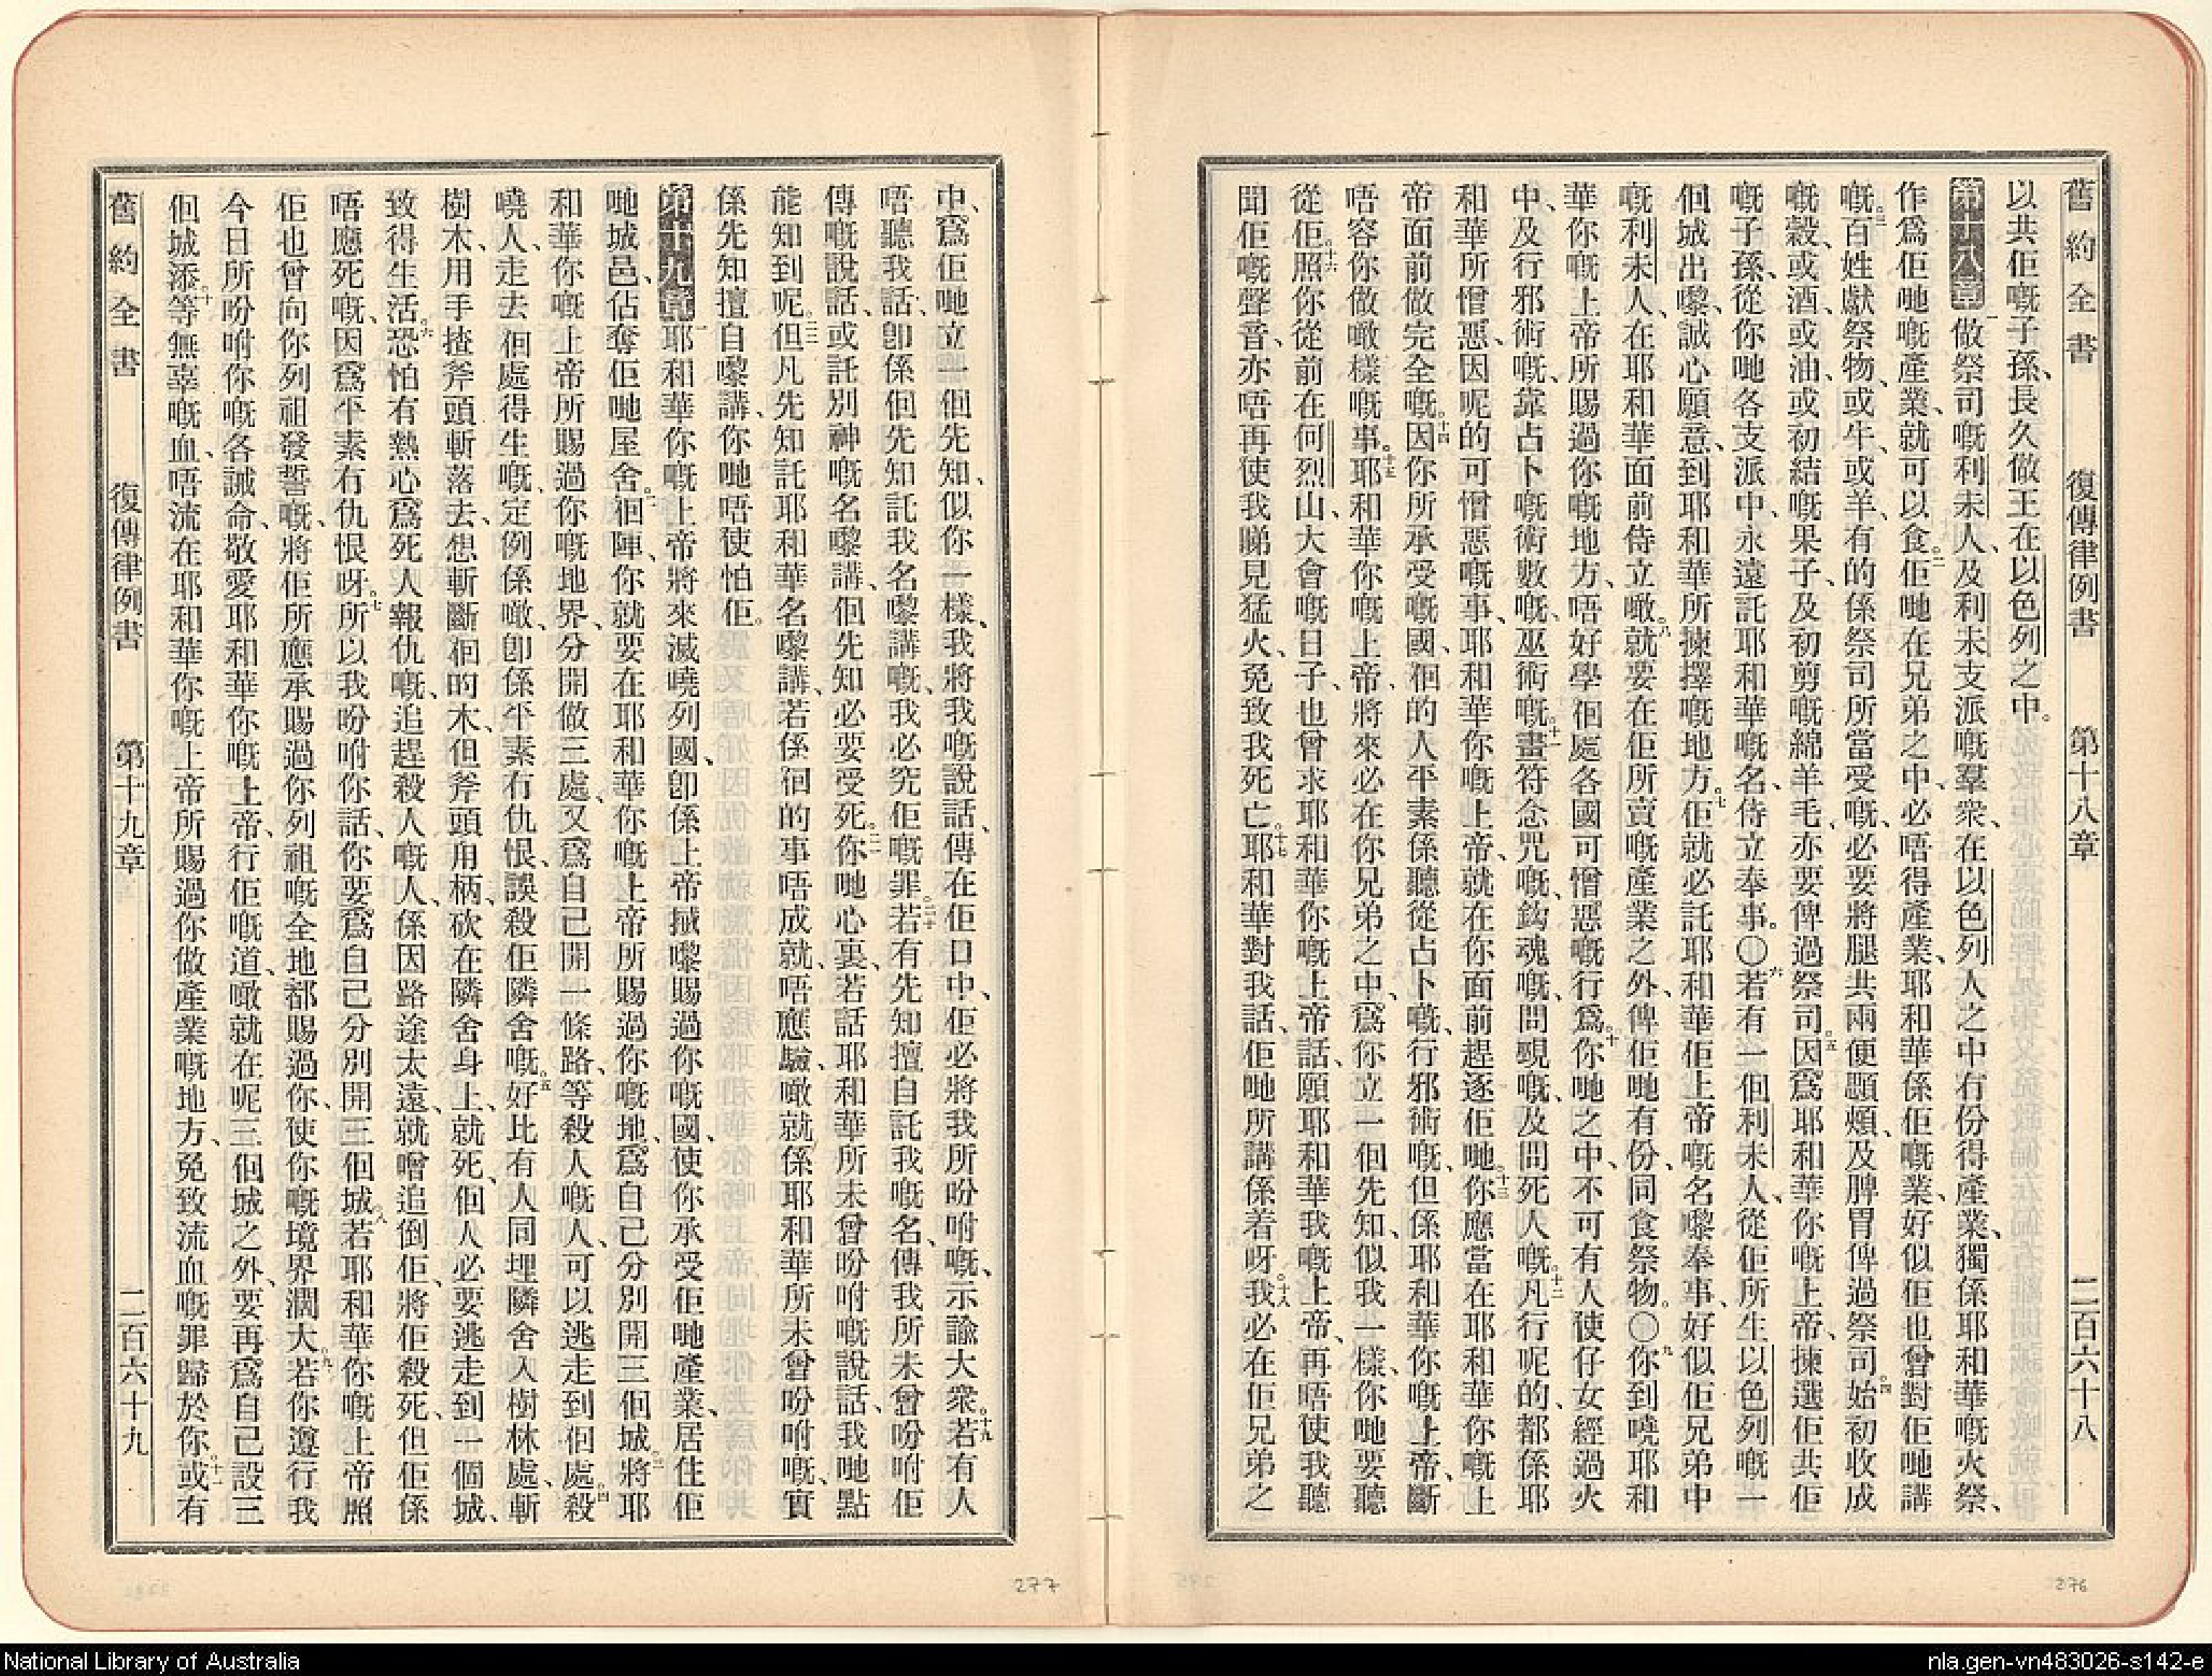 舊約全書 復傳律例書 第十八章 二百六十八
以共佢嘅子孫、長久做王在以色列之中。
第十八章 一做祭司嘅利未人、及利未支派嘅羣衆、在以色列人之中有份得產業、獨係耶和華嘅火祭、
作爲佢哋嘅產業、就可以食。二佢哋在兄弟之中、必唔得產業、耶和華係佢嘅業、好似佢也曾對佢哋講
嘅。三百姓獻祭物、或牛、或羊、有的係祭司所當受嘅、必要將腿共兩便顋頰、及脾胃俾過祭司。四始初收成
嘅穀、或酒、或油、或初結嘅果子、及初剪嘅綿羊毛、亦要俾過祭司。五因爲耶和華你嘅上帝、揀選佢共佢
嘅子孫、從你哋各支派中、永遠託耶和華嘅名、侍立奉事。〇六若有一個利未人、從佢所生以色列嘅一
個城出嚟、誠心願意、到耶和華所揀擇嘅地方。七佢就必託耶和華佢上帝嘅名嚟奉事、好似佢兄弟中
嘅利未人、在耶和華面前侍立噉。八就要在佢所賣嘅產業之外、俾佢哋有份、同食祭物。〇九你到嘵耶和
華你嘅上帝所賜過你嘅地方、唔好學徊處各國可憎惡嘅行爲。十你哋之中、不可有人使仔女經過火
中、及行邪術嘅、靠占卜嘅術數嘅、巫術嘅。十一畫符念咒嘅、鈎魂嘅、問覡嘅、及問死人嘅。十二凡行呢的、都係耶
和華所憎惡、因呢的可憎惡嘅事、耶和華你嘅上帝、就在你面前趕逐佢哋。十三你應當在耶和華你嘅上
帝面前做完全嘅。十四因你所承受嘅國、徊的人平素係聽從占卜嘅、行邪術嘅、但係耶和華你嘅上帝、斷
唔容你做噉樣嘅事。十五耶和華你嘅上帝、將來必在你兄弟之中、爲你立一個先知、似我一樣、你哋要聽
從佢。十六照你從前在何烈山、大會嘅日子、也曾求耶和華你嘅上帝話、願耶和華我嘅上帝、再唔使我聽
聞佢嘅聲音、亦唔再使我睇見猛火、免致我死亡。十七耶和華對我話、佢哋所講係着呀。十八我必在佢兄弟之
中、爲佢哋立一個先知、似你一樣、我將我嘅說話、傳在佢口中、佢必將我所吩咐嘅、示諭大衆。十九若有人
唔聽我話、卽係個先知託我名嚟講嘅、我必究佢嘅罪。二十若有先知擅自託我嘅名、傳我所未曾吩咐佢
傳嘅說話、或託別神嘅名嚟講、個先知必要受死。二一你哋心裏、若話耶和華所未曾吩咐嘅說話、我哋點
能知到呢。二二但凡先知託耶和華名嚟講、若係徊的事唔成就、唔應驗、噉就係耶和華所未曾吩咐嘅、實
係先知擅自嚟講、你哋唔使怕佢。
第十九章 一耶和華你嘅上帝、將來滅嘵列國、卽係上帝搣嚟賜過你嘅國、使你承受佢哋產業、居住佢
哋城邑、佔奪佢哋屋舍。二徊陣、你就要在耶和華你嘅上帝所賜過你嘅地、爲自己分別開三個城。三將耶
和華你嘅上帝所賜過你嘅地界、分開做三處、又爲自己開一條路、等殺人嘅人、可以逃走到個處。四殺
嘵人、走去徊處得生嘅、定例係噉、卽係平素有仇恨、誤殺佢隣舍嘅。五好比有人同埋隣舍入樹林處、斬
樹木、用手揸斧頭斬落去、想斬斷徊的木、但斧頭甩柄、砍在隣舍身上、就死、個人必要逃走到一個城、
致得生活。六恐怕有熱心爲死人報仇嘅、追趕殺人嘅人、係因路途太遠、就噲追倒佢、將佢殺死、但佢係
唔應死嘅、因爲平素冇仇恨呀。七所以我吩咐你話、你要爲自己分別開三個城。八若耶和華你嘅上帝、照
佢也曾向你列祖發誓嘅、將佢所應承賜過你列祖嘅全地都賜過你、使你嘅境界濶大。九若你遵行我
今日所吩咐你嘅各誡命、敬愛耶和華你嘅上帝、行佢嘅道、噉就在呢三個城之外、要再爲自己設三
個城添。十等無辜嘅血、唔流在耶和華你嘅上帝所賜過你做產業嘅地方、免致流血嘅罪歸於你。十一或有
舊約全書 復傳律例書 第十九章 二百六十九
277
276
National Library of Australia
nla.gen-vn483026-s142-e